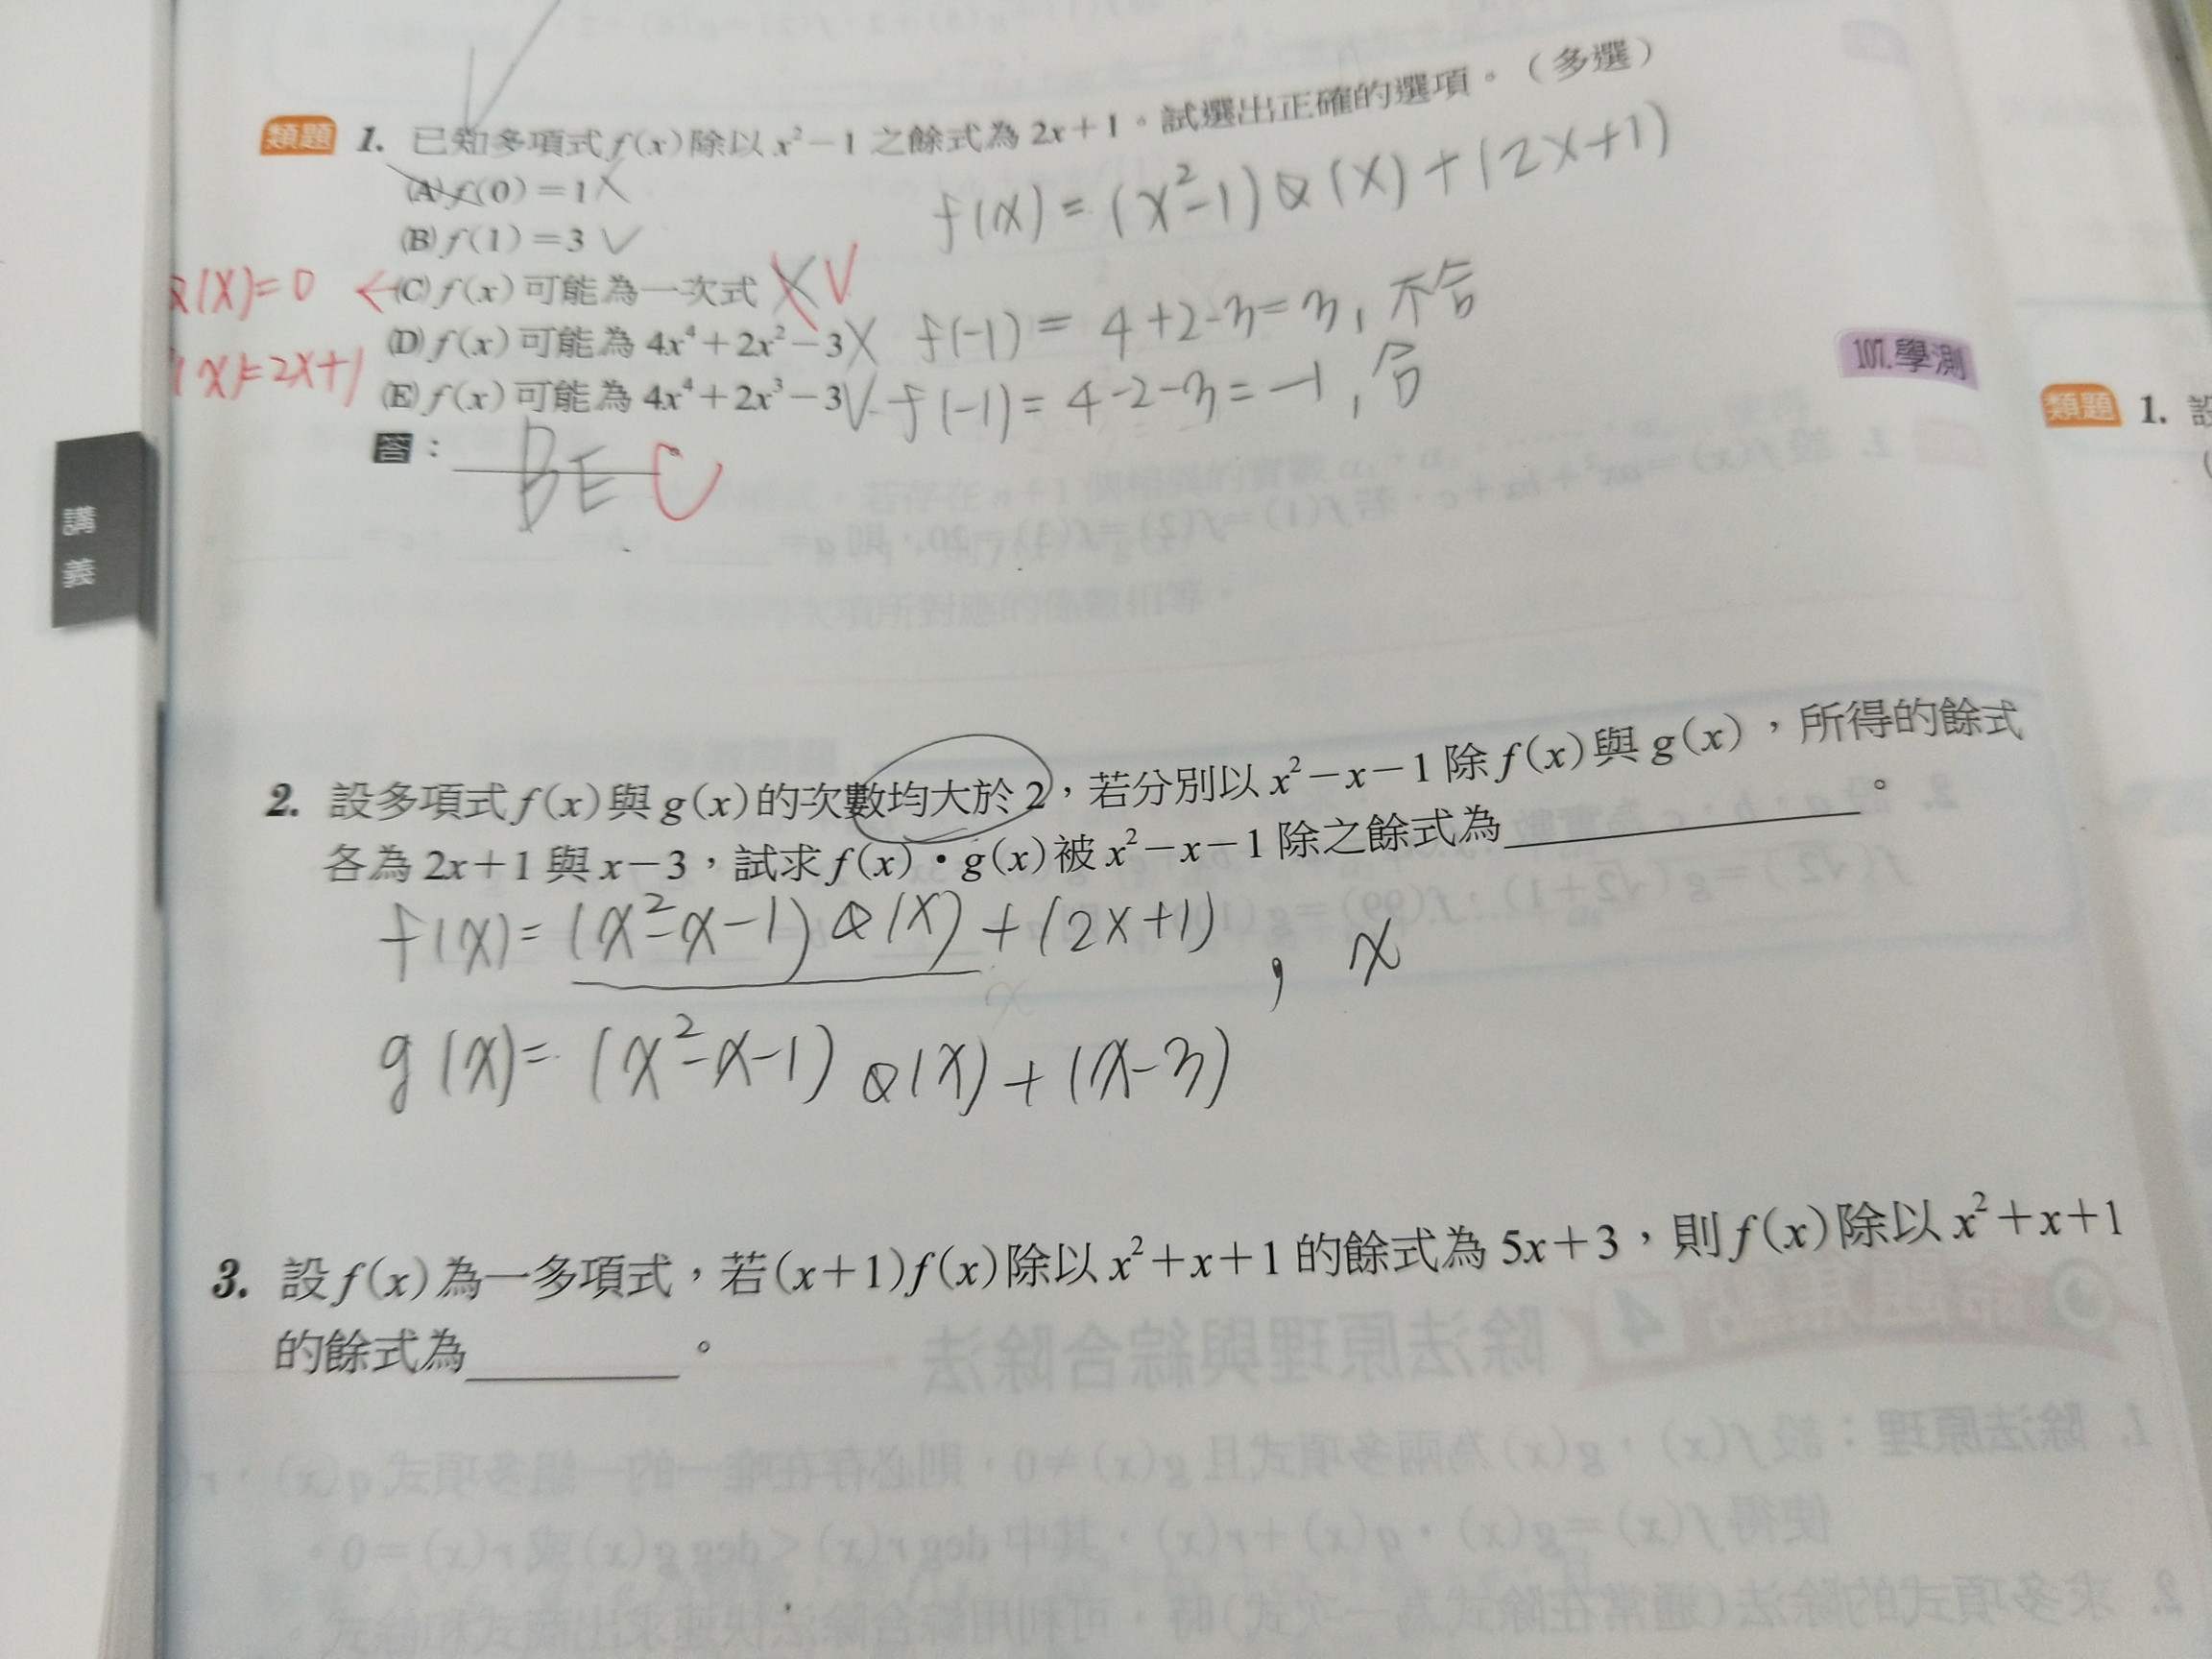 類題 1. 已知多項式 f(x) 除以 x²－1 之餘式為 2x＋1。試選出正確的選項。（多選）
f(x) = (x²-1)Q(x) + (2x+1)
(A) f(0)＝1 X
(B) f(1)＝3 ✓
Q(x)=0 ← (C) f(x) 可能為一次式 X V
(D) f(x) 可能為 4x⁴＋2x²－3 X f(-1) = 4+2-3=3, 不合
x)=2x+1
(E) f(x) 可能為 4x⁴＋2x³－3 V f(-1) = 4-2-3=-1, 合
107.學測
答： BE C
講義
類題 1. 設
2. 設多項式 f(x) 與 g(x) 的次數均大於 2，若分別以 x²－x－1 除 f(x) 與 g(x)，所得的餘式
各為 2x＋1 與 x－3，試求 f(x)・g(x) 被 x²－x－1 除之餘式為 。
f(x) = (x²-x-1) Q(x) + (2x+1) , x
g(x) = (x²-x-1) Q(x) + (x-3)
3. 設 f(x) 為一多項式，若 (x＋1)f(x) 除以 x²＋x＋1 的餘式為 5x＋3，則 f(x) 除以 x²＋x＋1
的餘式為 。